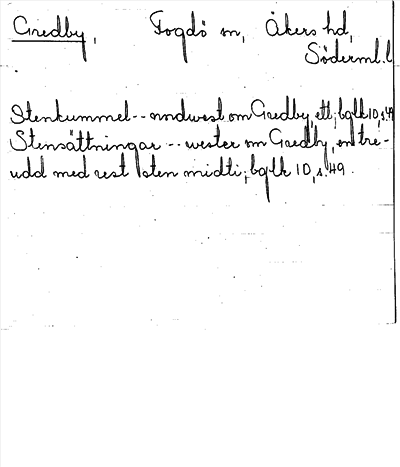 Gredby, Fogdö sn, Åkers hd,
Söderml. l
Stenkummel -- nordvest om Gredby, ett; bglk 10, s. 49
Stensättningar -- vester om Gredby, en tre-
udd med rest sten midti; bglk 10, s. 49.